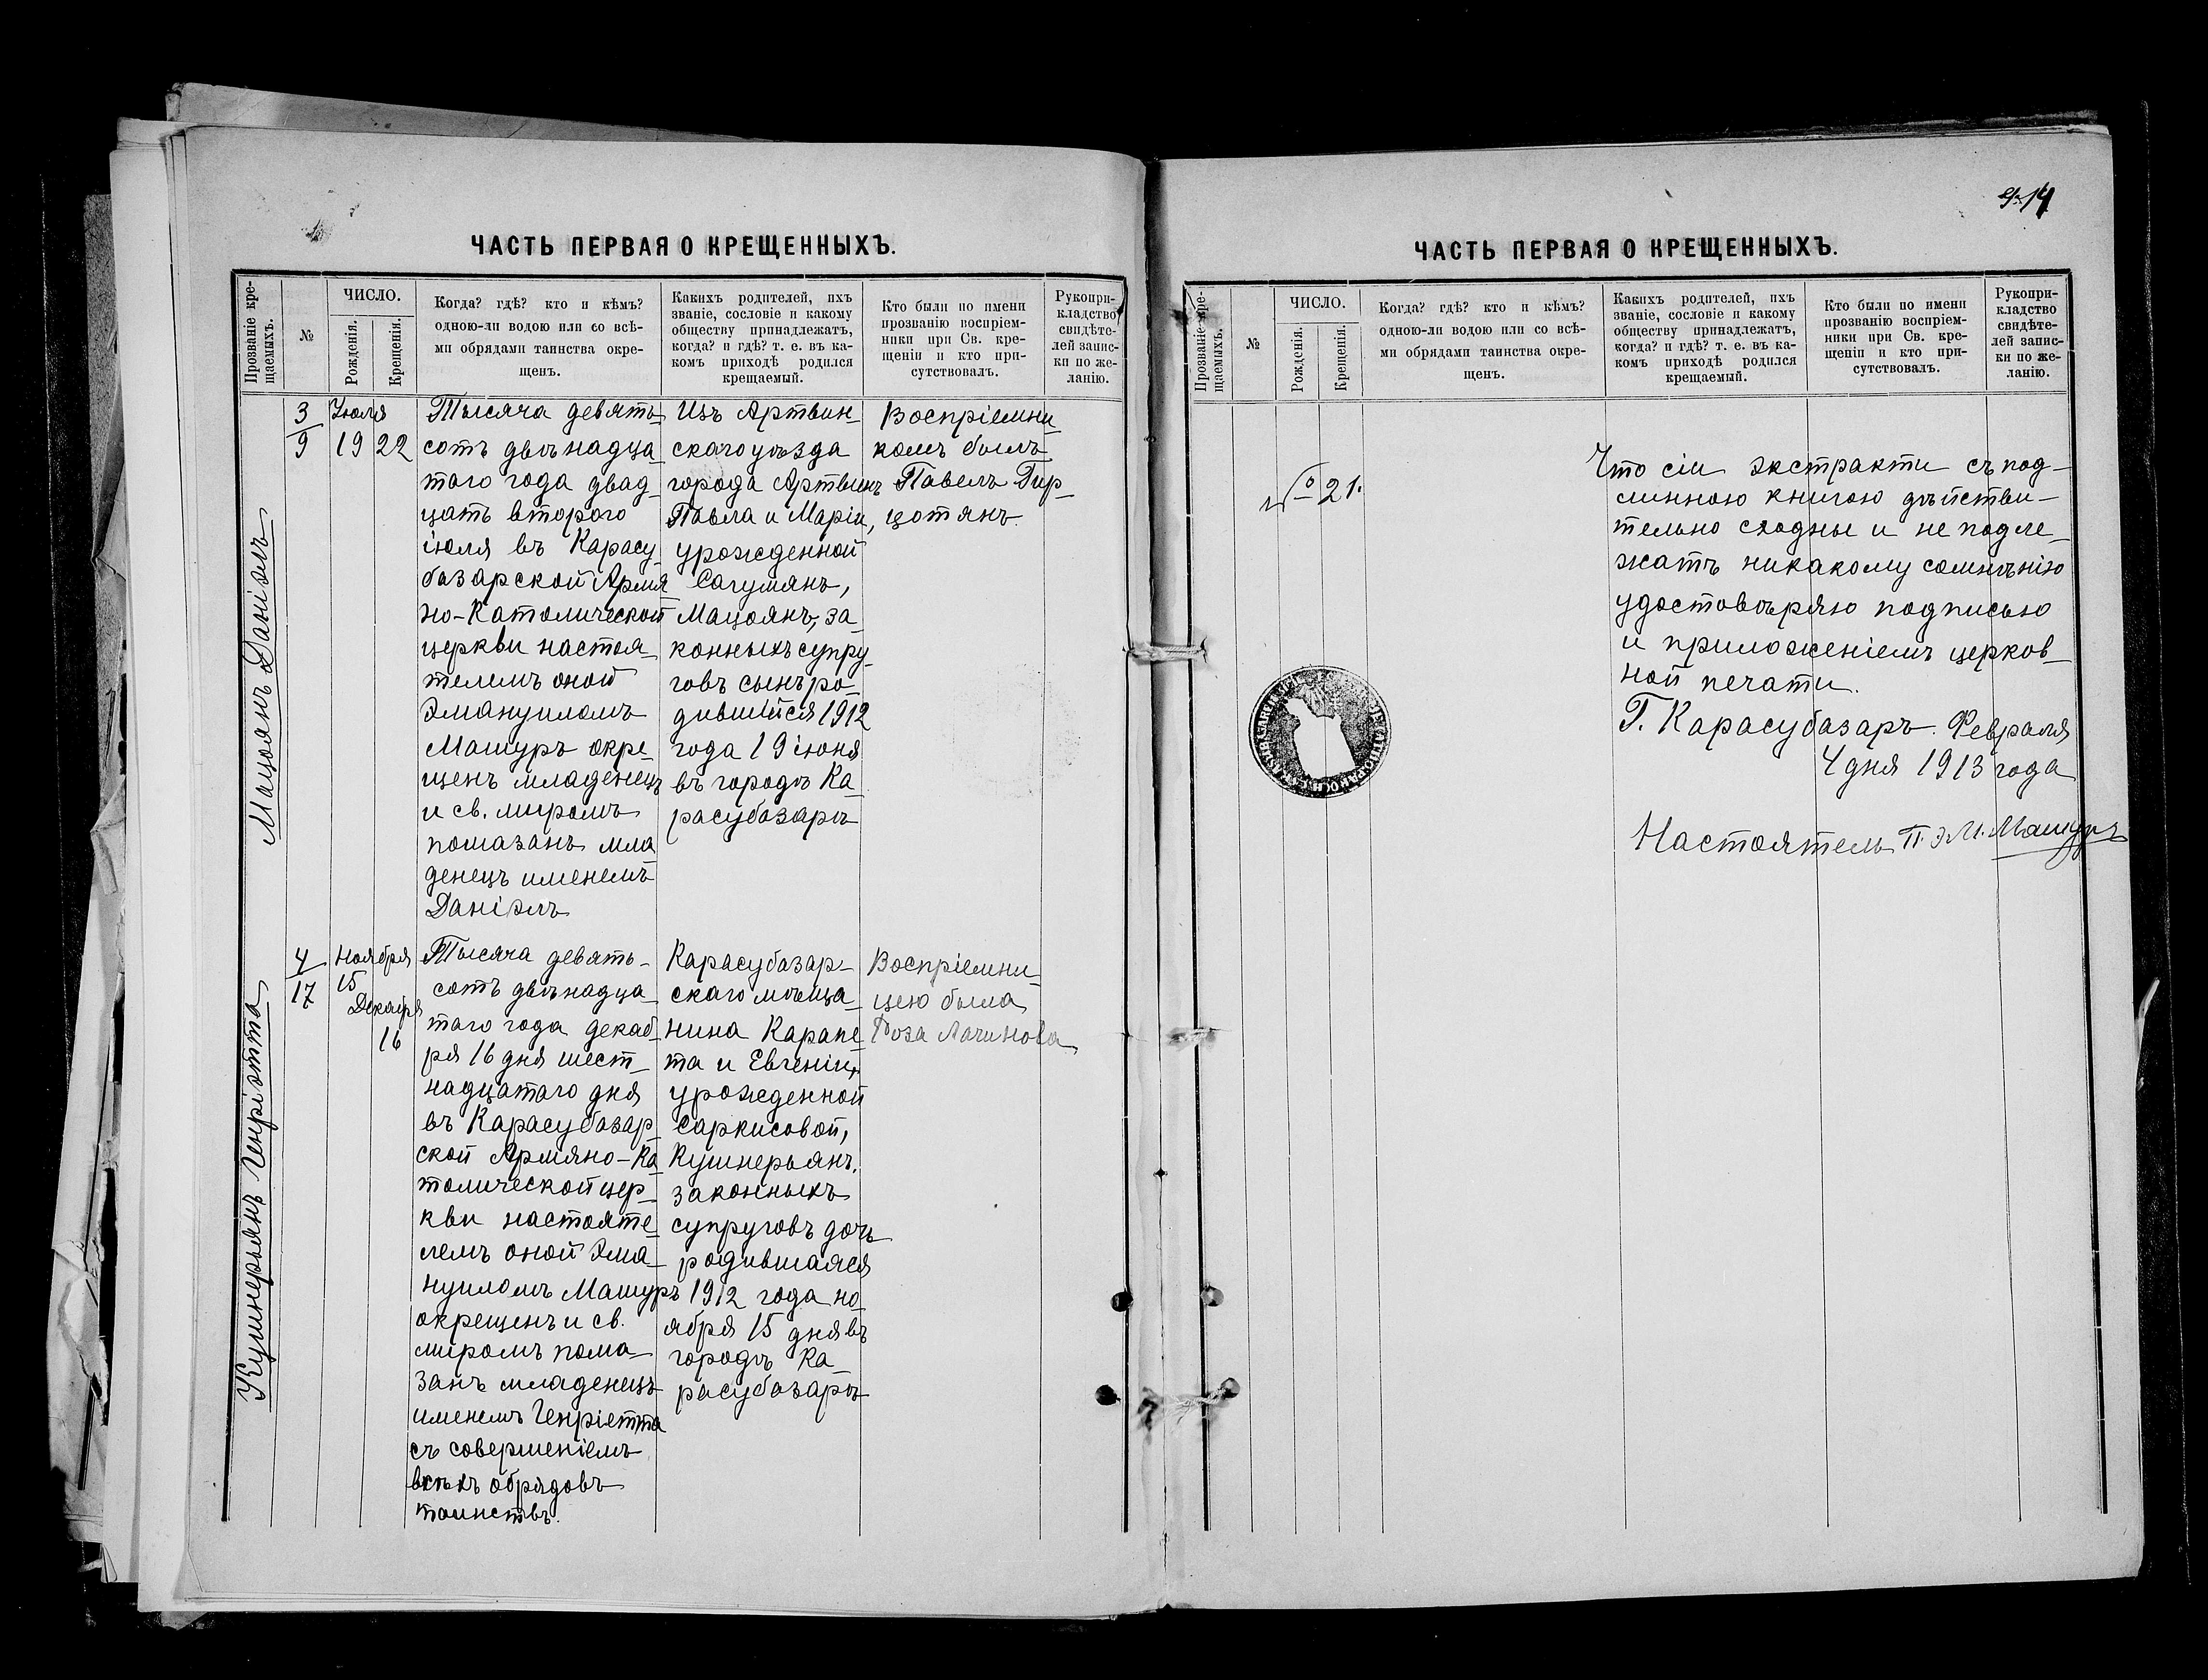 ЧАСТЬ ПЕРВАЯ О КРЕЩЕННЫХЪ.
Прозваніе кре-
щаемыхъ.
№
ЧИСЛО.
Рожденія.
Крещенія.
Когда? гдѣ? кто и кѣмъ?
одною-ли водою или со всѣ-
ми обрядами таинства окре-
щенъ.
Какихъ родителей, ихъ
званіе, сословіе и какому
обществу принадлежатъ,
когда? и гдѣ? т. е. въ ка-
комъ приходѣ родился
крещаемый.
Кто были по имени
прозванію воспріем-
ники при Св. кре-
щеніи и кто при-
сутствовалъ.
Рукопри-
кладство
свидѣте-
лей запис-
ки по же-
ланію.
Мацоянъ Даніэлъ
3
9
Іюля
19 22
Тысяча девять-
сотъ двѣнадца-
таго года двад-
цать второго
іюля въ Карасу-
базарской Армя
но-Католической
церкви настоя-
телемъ оной
Эмануиломъ
Машуръ окре-
щенъ младенецъ
и св. миромъ
помазанъ мла
денецъ именемъ
Даніэлъ
Изъ Артвин-
скаго уѣзда
города Артвинъ
Павла и Маріи,
урожденной
Сагумянъ,
Мацоянъ, за-
конныхъ супру-
говъ сынъ ро-
дившійся 1912
года 19 іюня
въ городѣ Ка-
расубазарѣ
Воспріемни-
комъ былъ
Павелъ Гир-
цотянъ
Кушнерьянъ Генріэтта
4
17
Ноября
15
Декабря
16
Тысяча девять-
сотъ двѣнадца-
таго года декаб-
ря 16 дня шест-
надцатаго дня
въ Карасубазар-
ской Армяно-Ка-
толической цер-
кви настояте-
лемъ оной Эма-
нуиломъ Машуръ
окрещенъ и св.
миромъ пома-
занъ младенецъ
именемъ Генріетта
съ совершеніемъ
всѣхъ обрядовъ
таинствъ.
Карасубазар-
скаго мѣща-
нина Карапе-
та и Евгеніи,
урожденной
Саркисовой,
Кушнерьянъ,
законныхъ
супруговъ дочь
родившаяся
1912 года но-
ября 15 дня въ
городѣ Ка-
расубазарѣ
Воспріемни-
цею была
Роза Лачинова
14
ЧАСТЬ ПЕРВАЯ О КРЕЩЕННЫХЪ.
Прозваніе кре-
щаемыхъ.
№
ЧИСЛО.
Рожденія.
Крещенія.
Когда? гдѣ? кто и кѣмъ?
одною-ли водою или со всѣ-
ми обрядами таинства окре-
щенъ.
Какихъ родителей, ихъ
званіе, сословіе и какому
обществу принадлежатъ,
когда? и гдѣ? т. е. въ ка-
комъ приходѣ родился
крещаемый.
Кто были по имени
прозванію воспріем-
ники при Св. кре-
щеніи и кто при-
сутствовалъ.
Рукопри-
кладство
свидѣте-
лей запис-
ки по же-
ланію.
№ 21.
Что сіи экстракти съ под-
линною книгою дѣйстви-
тельно сходны и не подле-
жатъ никакому сомнѣнію
удостовѣряю подписью
и приложеніемъ церков-
ной печати.
Г. Карасубазаръ. Февраля
4 дня 1913 года
Настоятель П. Э. М. Машуръ